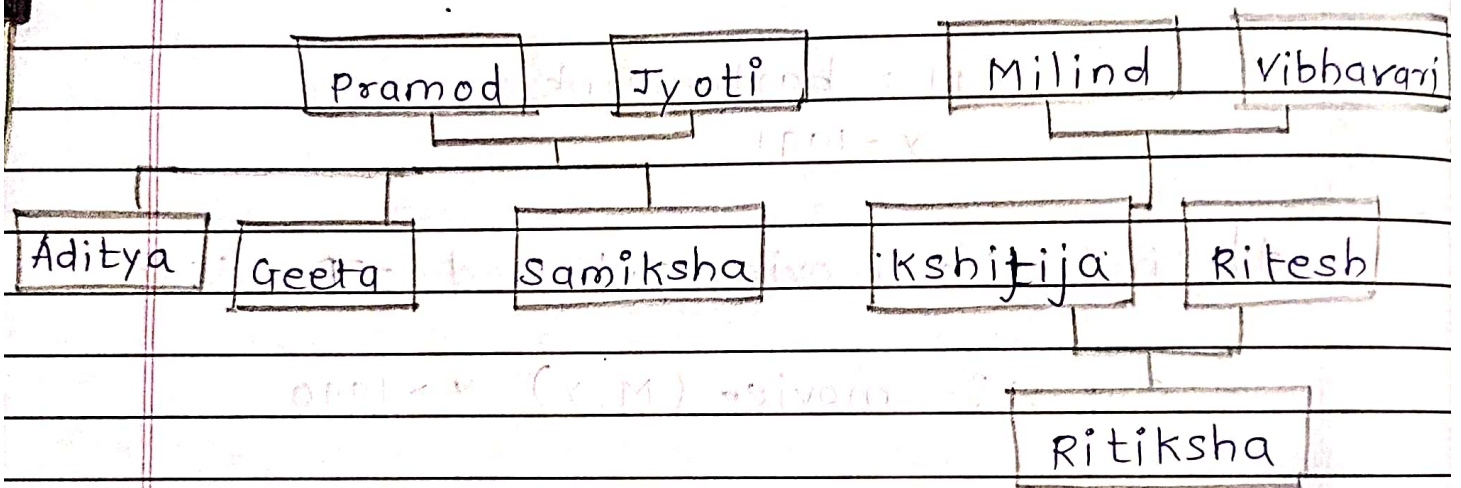 Pramod Jyoti Milind Vibhavari
Aditya Geeta Samiksha Kshitija Ritesh
Ritiksha